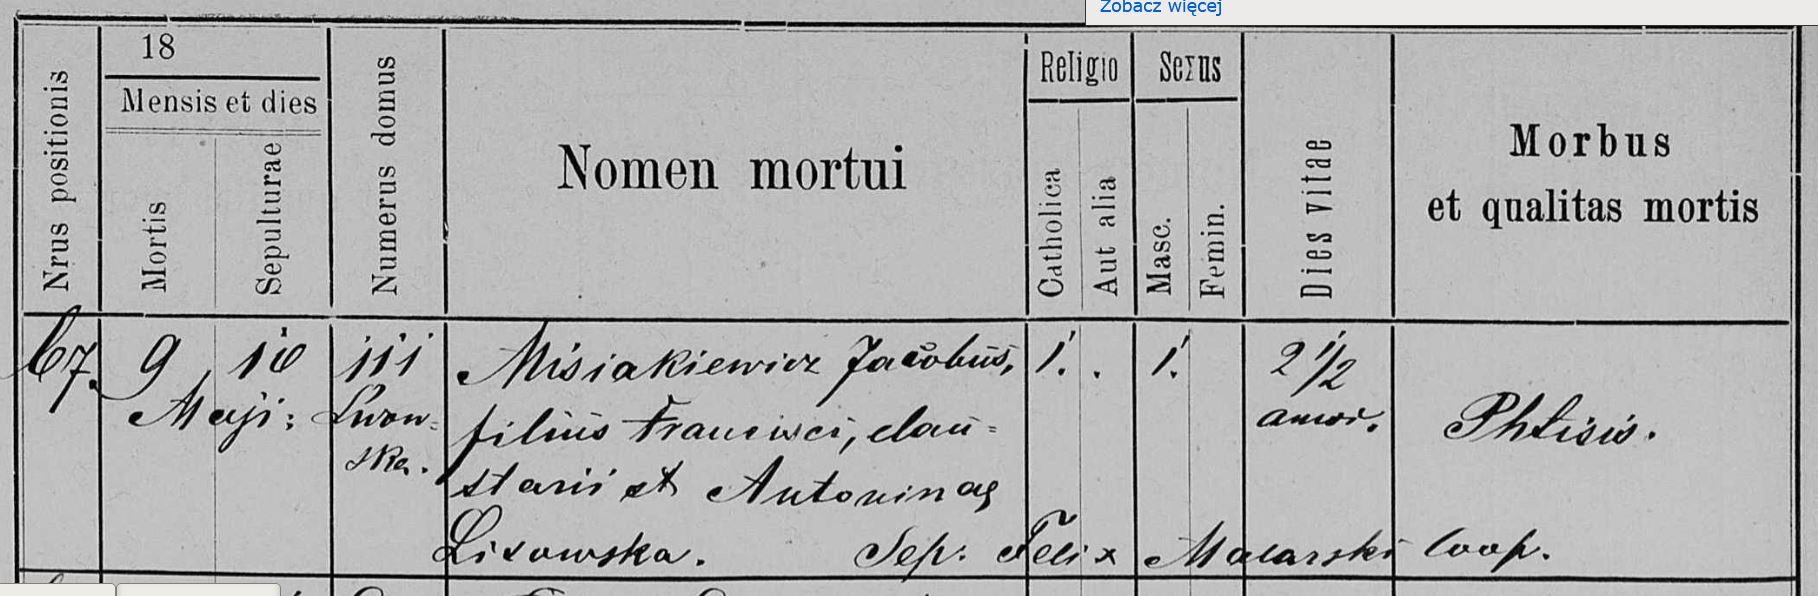 Zobacz więcej
Nrus positionis
18
Mensis et dies
Mortis
Sepulturae
Numerus domus
Nomen mortui
Religio
Catholica
Aut alia
Sexus
Masc.
Femin.
Dies vitae
Morbus
et qualitas mortis
67. 9 10 111 Misiakiewicz Jacobus, 1. . 1. 2 1/2
Maji: Lwow= filius Francisci, clau= anni. Phtisis.
ska. starii et Antoninae
Lisowska. Sep. Felix Malarski Coop.